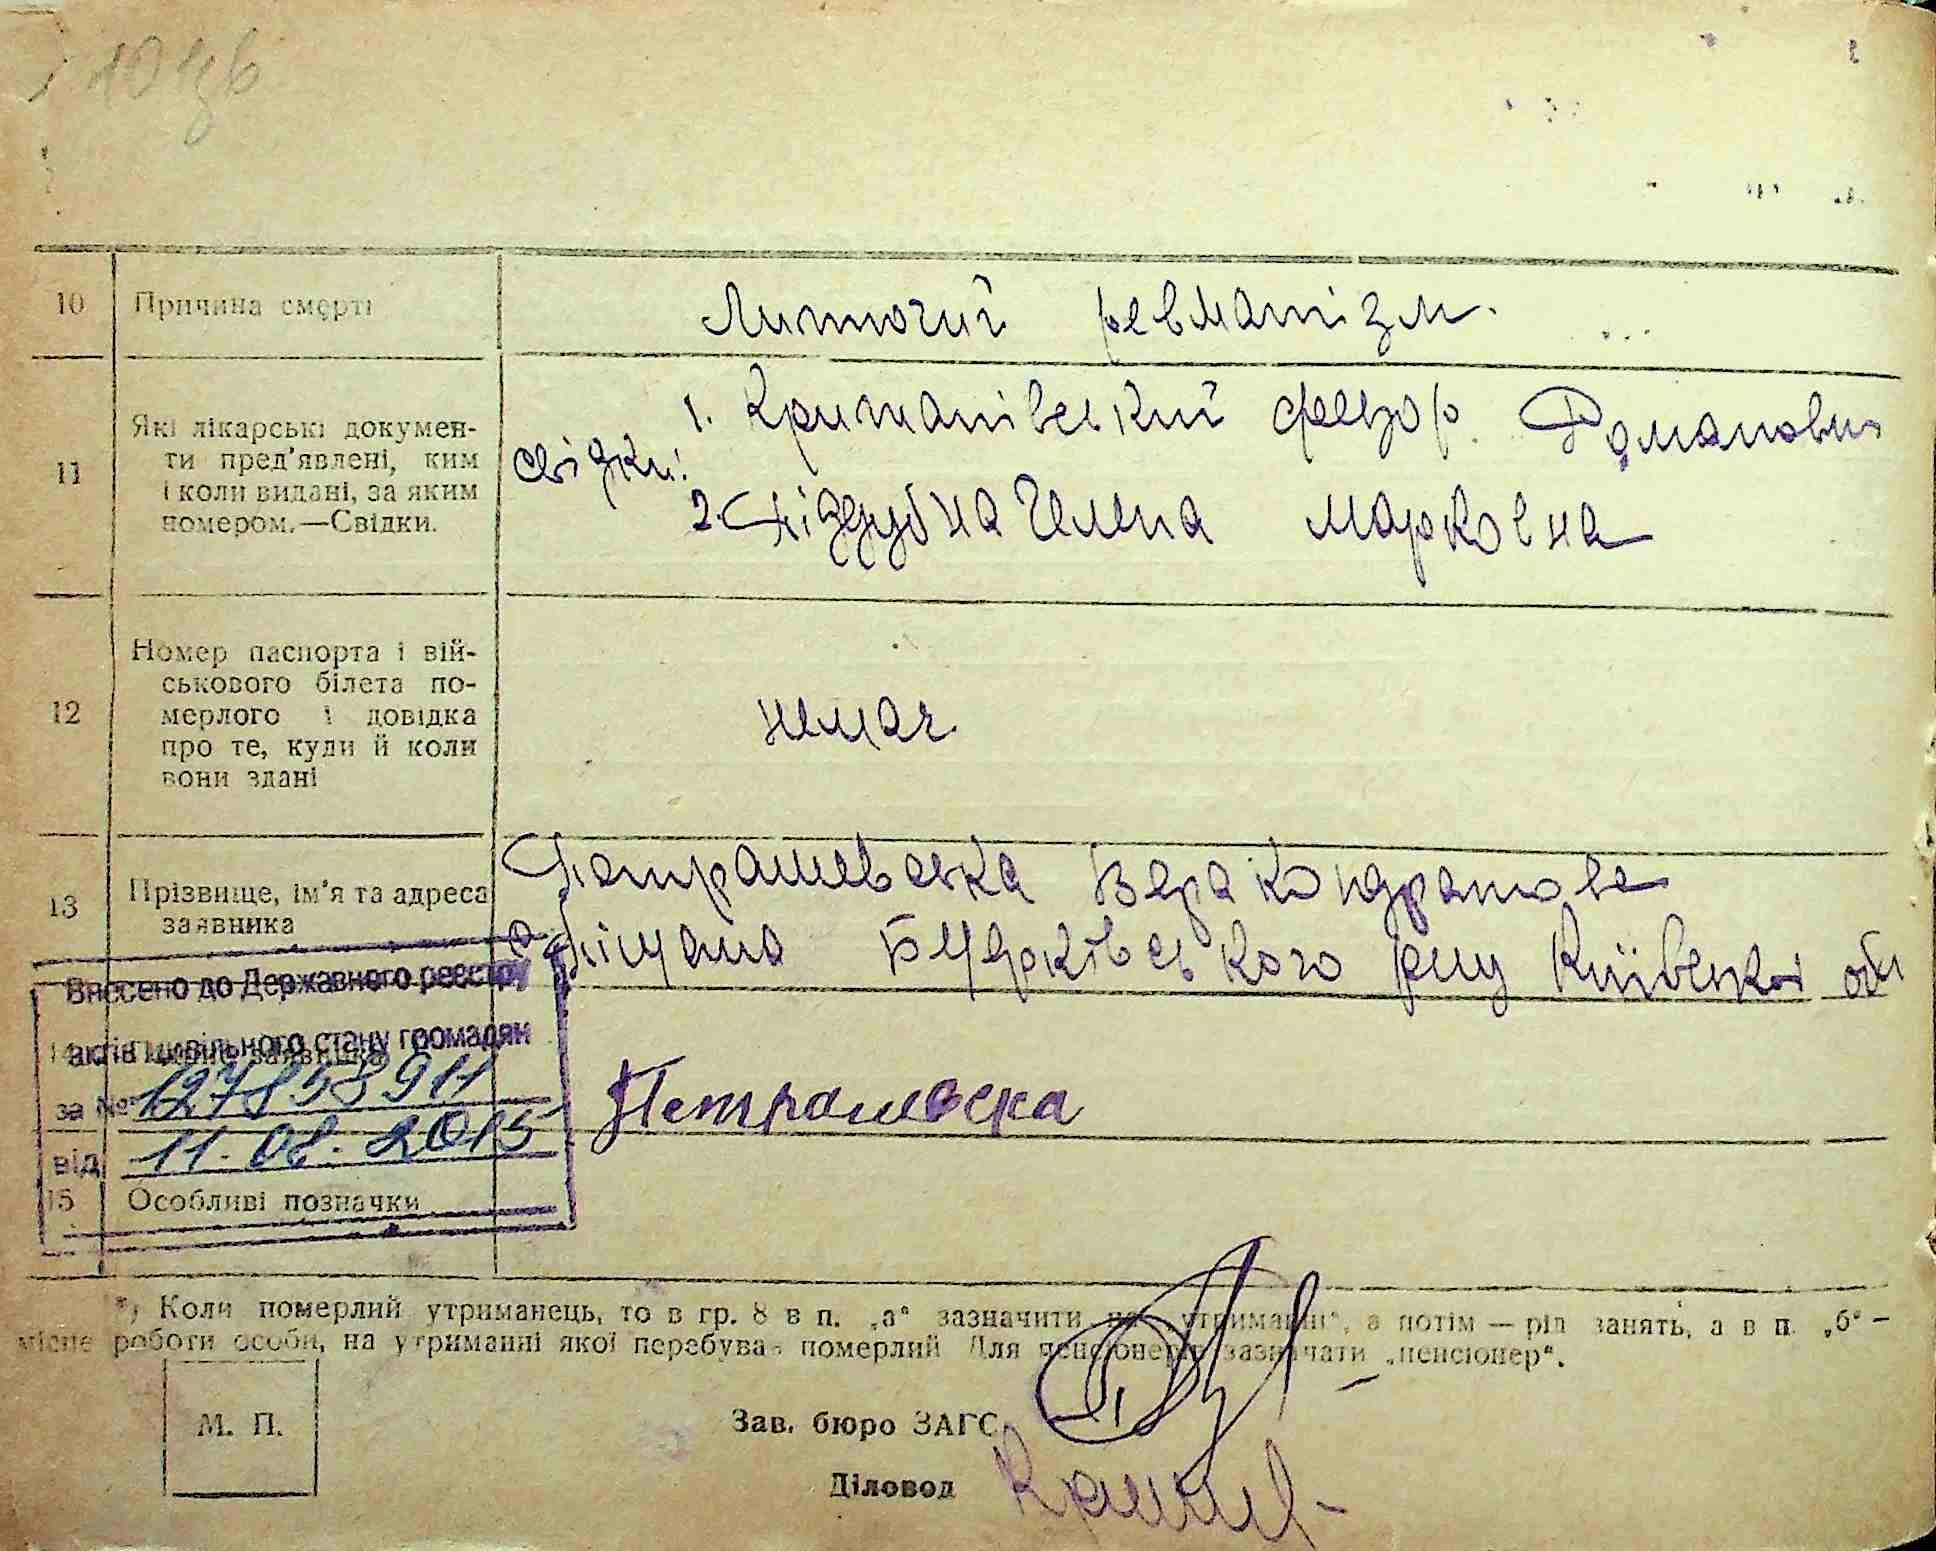 10
Причина смерті
Литючий ревматізм.
11
Які лікарські докумен-
ти пред'явлені, ким
і коли видані, за яким
номером.—Свідки.
свідки:
1. Романович
2. Піддубна Гелена Марковна
12
Номер паспорта і вій-
ськового білета по-
мерлого і довідка
про те, куди й коли
вони здані
немає
13
Прізвище, ім'я та адреса
заявника
Петрашевська Вера Кондратове
Київської обл
Внесено до Державного реєстру
актів цивільного стану громадян
за №
від 11.08.2015
14
заявника
Петрашевска
15
Особливі позначки
*) Коли померлий утриманець, то в гр. 8 в п. „а“ зазначити на „утриманні“, а потім — рід занять, а в п. „б“ —
місце роботи особи, на утриманні якої перебував померлий Для пенсіонерів зазначати „пенсіонер“.
М. П.
Зав. бюро ЗАГС
Діловод